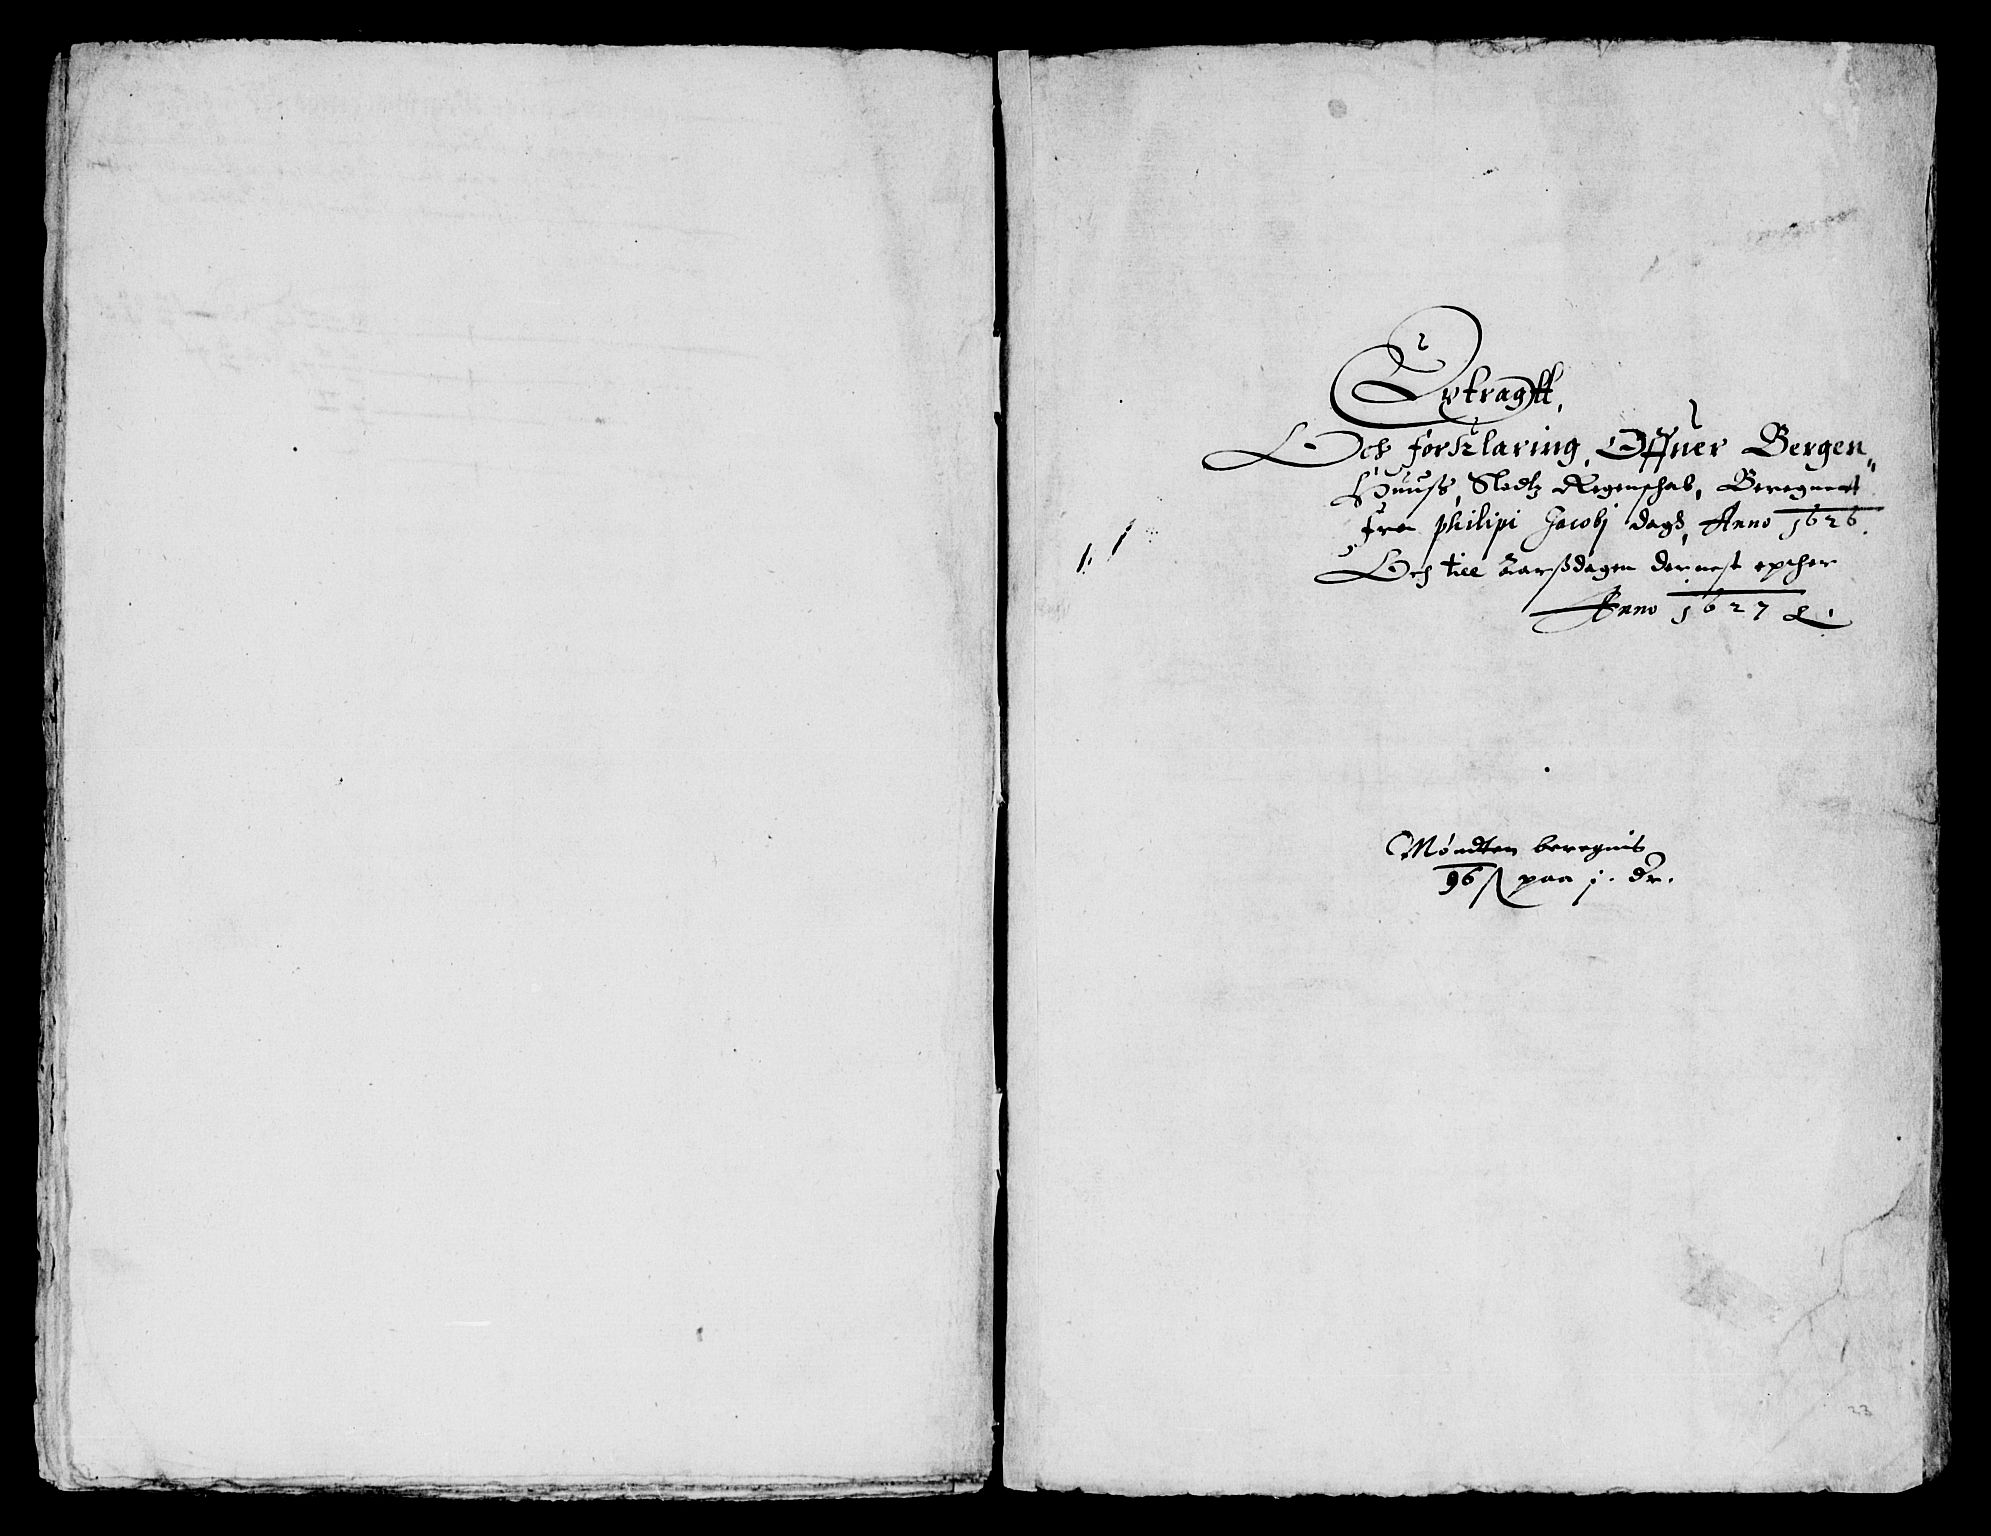 Extragtt,
Och forKlaring, Offuer Bergen„
Huuss, Slodtz Regenschab, Beregnett
fra Philipi Jacobj dags, Anno 1626.
Och till Aarssdagen dernest epther
Anno 1627
Møndten beregnis
96 ß paa j. dr.
23